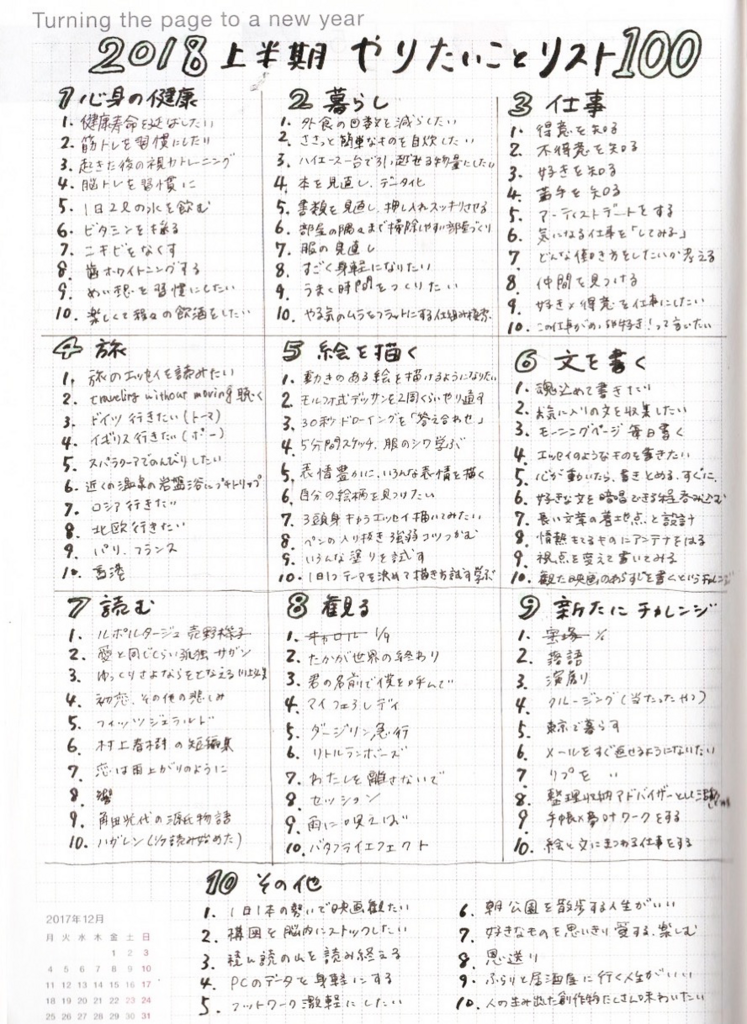 Turning the page to a new year
2018 上半期 やりたいことリスト100
1 心身の健康
1. 健康寿命を延ばしたい
2. 筋トレを習慣にしたい
3. 起きた後の視力トレーニング
4. 脳トレを習慣に
5. 1日2Lの水を飲む
6. ビタミンを摂る
7. ニキビをなくす
8. 歯ホワイトニングする
9. めい想を習慣にしたい
10. 楽しくて程々の飲酒をしたい
2 暮らし
1. 外食の回数を減らしたい
2. ささっと簡単なものを自炊したい
3. ハイエース一台で引っ越せる物量にしたい
4. 本を見直し、データ化
5. 書類を見直し、押し入れスッキリさせる
6. 部屋の隅々まで掃除しやすい部屋づくり
7. 服の見直し
8. すごく身軽になりたい
9. うまく時間をつくりたい
10. やる気のムラをフラットにする仕組み模索
3 仕事
1. 得意を知る
2. 不得意を知る
3. 好きを知る
4. 苦手を知る
5. アーティストデートをする
6. 気になる仕事を「してみる」
7. どんな働き方をしたいか考える
8. 仲間を見つける
9. 好き×得意を仕事にしたい
10. この仕事が好き!って言いたい
4 旅
1. 旅のエッセイを読みたい
2. traveling without moving 聴く
3. ドイツ行きたい(トーマ)
4. イギリス行きたい(ポー)
5. スパラクーアでのんびりしたい
6. 近くの温泉の岩盤浴にプチトリップ
7. ロシア行きたい
8. 北欧行きたい
9. パリ、フランス
10. 香港
5 絵を描く
1. 動きのある絵を描けるようになりたい
2. モルフォ式デッサンを2周くらいやり直す
3. 30秒ドローイングを「答え合わせ」
4. 5分間スケッチ、服のシワ学ぶ
5. 表情豊かに、いろんな表情を描く
6. 自分の絵柄を見つけたい
7. 3頭身キャラエッセイ描いてみたい
8. ペンの入り抜き強弱コツつかむ
9. いろんな塗りを試す
10. 1日1つテーマを決めて描き方試す学ぶ
6 文を書く
1. 魂込めて書きたい
2. お気に入りの文を収集したい
3. モーニングページ毎日書く
4. エッセイのようなものを書きたい
5. 心が動いたら、書きとめる。すぐに。
6. 好きな文を暗唱できる程呑み込む
7. 長い文章の着地点と設計
8. 情熱もてるものにアンテナをはる
9. 視点を変えて書いてみる
10. 観た映画のあらすじを書くというチャレンジ
7 読む
1. ルポルタージュ 売野機子
2. 愛と同じくらい孤独 サガン
3. ゆっくりさよならをとなえる 川上弘美
4. 初恋、その他の悲しみ
5. フィッツジェラルド
6. 村上春樹の短編集
7. 恋は雨上がりのように
8.
9. 角田光代の源氏物語
10. ハガレン(1/5読み始めた)
8 観る
1. キャロル 1/9
2. たかが世界の終わり
3. 君の名前で僕を呼んで
4. マイフェアレディ
5. ダージリン急行
6. リトルランボーズ
7. わたしを離さないで
8. セッション
9. 雨に唄えば
10. バタフライエフェクト
9 新たにチャレンジ
1. 宝塚
2. 落語
3. 演劇
4. クルージング(当たったやつ)
5. 東京で暮らす
6. メールをすぐ返せるようになりたい
7. リプを 〃
8. 整理収納アドバイザーとして活動
9. 手帳×夢叶ワークをする
10. 絵と文にまつわる仕事をする
10 その他
1. 1日1本の勢いで映画観たい
2. 構図を脳内にストックしたい
3. 積ん読の山を読み終える
4. PCのデータを身軽にする
5. フットワーク激軽にしたい
6. 朝公園を散歩する人生がいい
7. 好きなものを思いきり愛する、楽しむ
8. 恩送り
9. ふらりと居酒屋に行く人生がいい
10. 人の生み出た創作物たくさん味わいたい
2017年12月
月 火 水 木 金 土 日
1 2 3
4 5 6 7 8 9 10
11 12 13 14 15 16 17
18 19 20 21 22 23 24
25 26 27 28 29 30 31